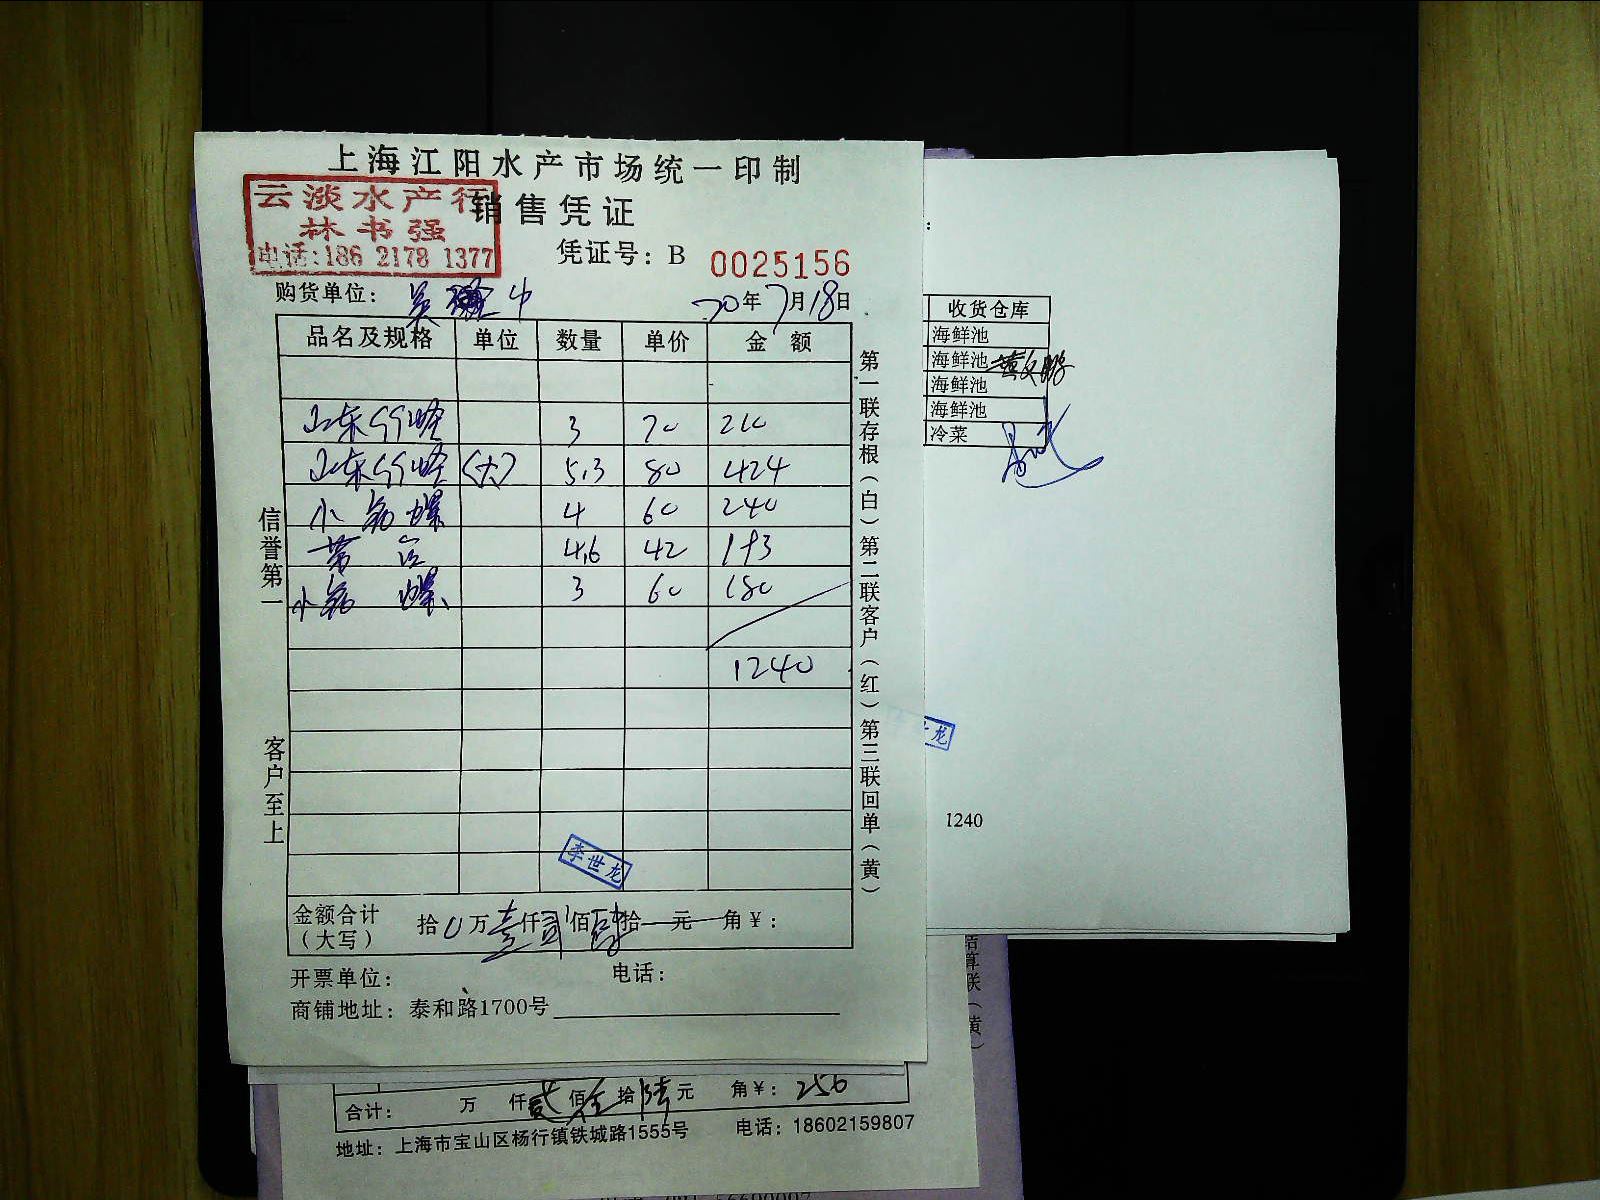 上海江阳水产市场统一印制
云淡水产行
销售凭证
林书强
电话:186 2178 1377
凭证号：B 0025156
购货单位：
20年7月18日
品名及规格 单位 数量 单价 金额
山东竹蛏 3 70 210
山东竹蛏 (大) 5.3 80 424
小 螺 4 60 240
4.6 42 193
小 螺 3 60 180
1240
信誉第一
客户至上
第一联存根（白）第二联客户（红）第三联回单（黄）
李世龙
金额合计（大写） 拾0万壹仟贰佰肆拾元 角¥：
开票单位： 电话：
商铺地址：泰和路1700号
收货仓库
海鲜池
海鲜池
海鲜池
海鲜池
冷菜
龙
1240
合计： 万 仟贰佰伍拾陆元 角¥：256
地址：上海市宝山区杨行镇铁城路1555号 电话：18602159807
结算联（黄）